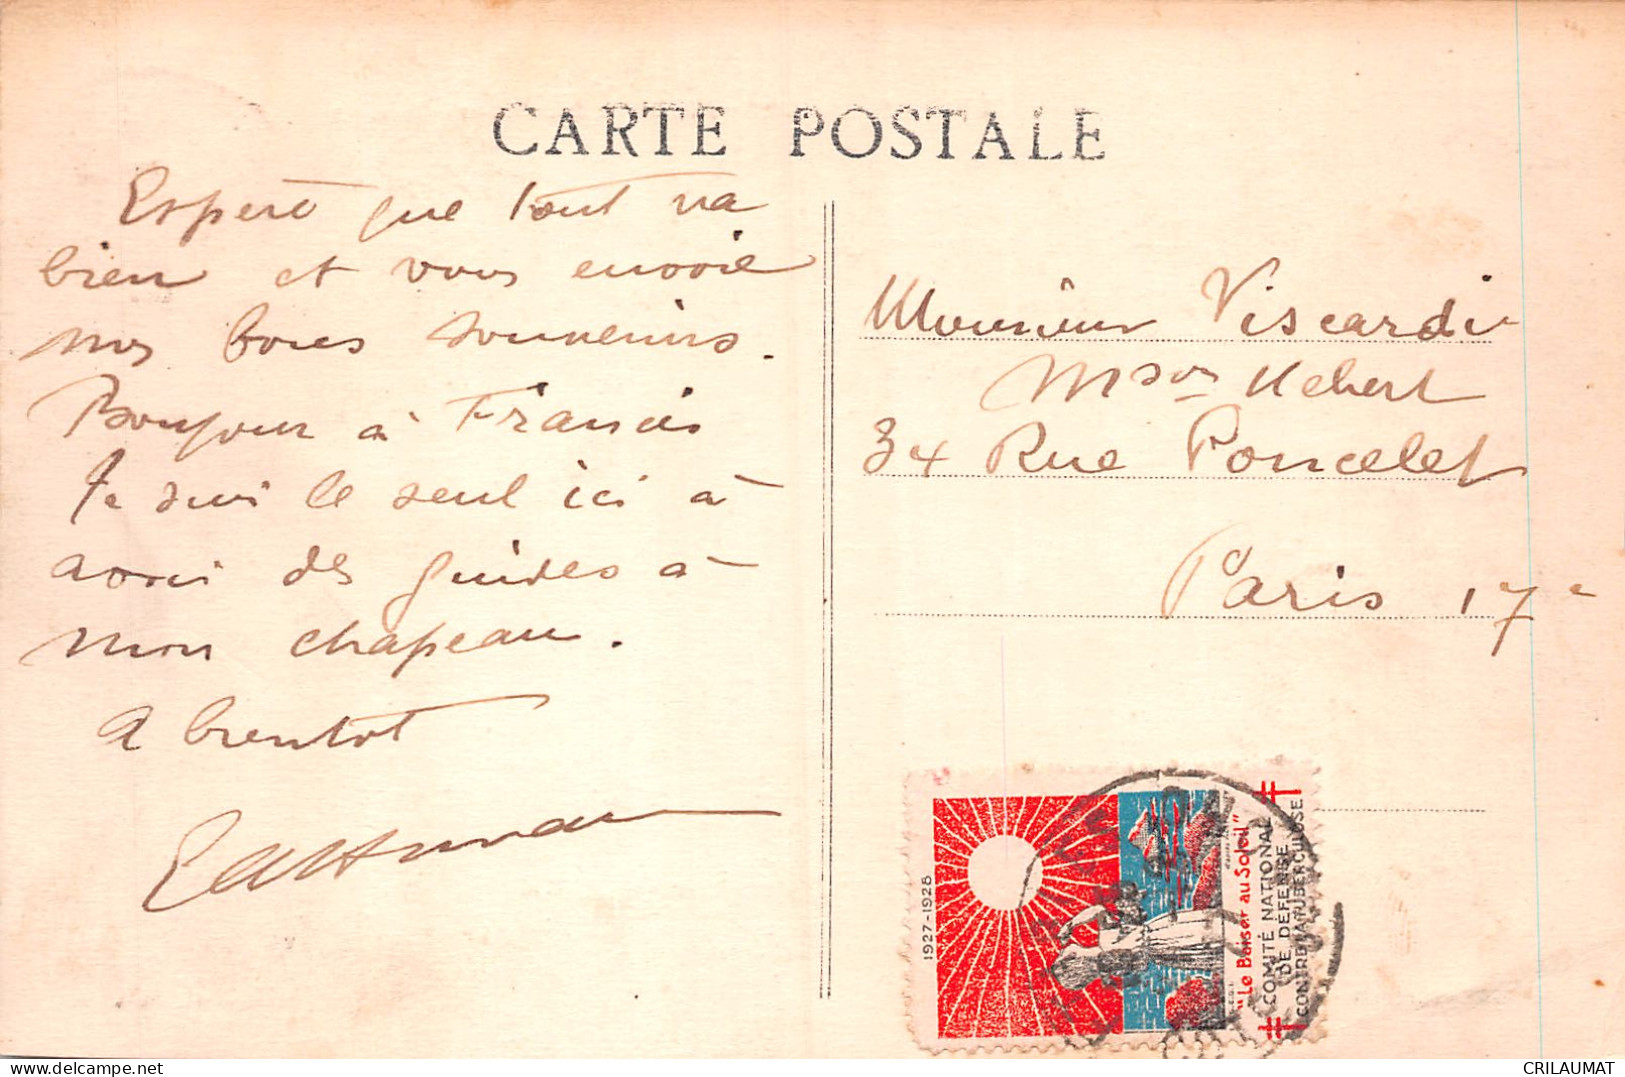 CARTE POSTALE
Espere que tout va
bien et vous envoie
nos bons souvenirs.
Bonjour à Francis
Je suis le seul ici à
avoir des guides à
mon chapeau.
A bientot
Monsieur Viscardi
Mson Hebert
34 Rue Poncelet
Paris 17e
1927-1928
"Le Baiser au Soleil"
COMITÉ NATIONAL
DE DÉFENSE
CONTRE LA TUBERCULOSE
delcampe.net
CRILAUMAT